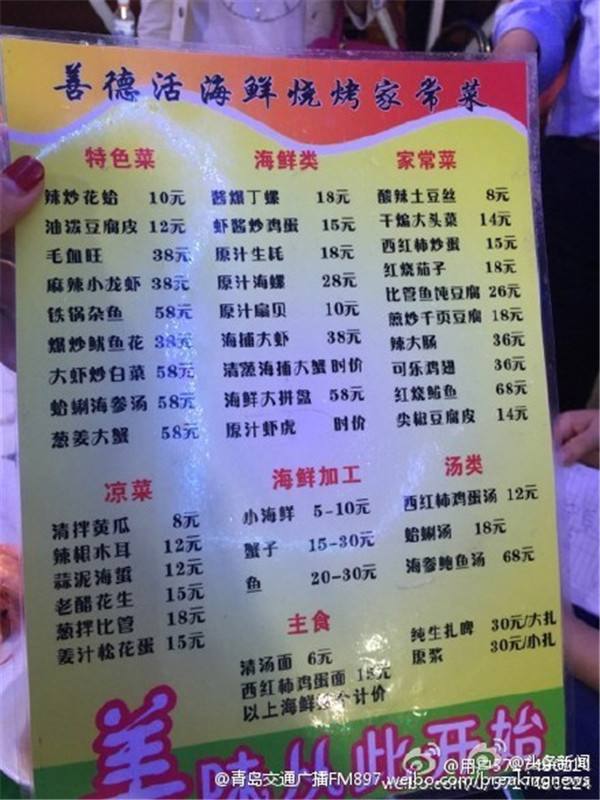 善德活海鲜烧烤家常菜
特色菜
辣炒花蛤 10元
油泼豆腐皮 12元
毛血旺 38元
麻辣小龙虾 38元
铁锅杂鱼 58元
爆炒鱿鱼花 38元
大虾炒白菜 58元
蛤蜊海参汤 58元
葱姜大蟹 58元
海鲜类
酱爆丁螺 18元
虾酱炒鸡蛋 15元
原汁生蚝 18元
原汁海螺 28元
原汁扇贝 10元
海捕大虾 38元
清蒸海捕大蟹 时价
海鲜大拼盘 58元
原汁虾虎 时价
家常菜
酸辣土豆丝 8元
干煸大头菜 14元
西红柿炒蛋 15元
红烧茄子 18元
比管鱼炖豆腐 26元
煎炒千页豆腐 18元
辣大肠 36元
可乐鸡翅 36元
红烧鲅鱼 68元
尖椒豆腐皮 14元
凉菜
清拌黄瓜 8元
辣根木耳 12元
蒜泥海蜇 12元
老醋花生 15元
葱拌比管 18元
姜汁松花蛋 15元
海鲜加工
小海鲜 5-10元
蟹子 15-30元
鱼 20-30元
主食
清汤面 6元
西红柿鸡蛋面 元
以上海鲜 个计价
汤类
西红柿鸡蛋汤 12元
蛤蜊汤 18元
海参鲍鱼汤 68元
纯生扎啤 30元/大扎
原浆 30元/小扎
美味从此开始
@青岛交通广播FM897
@头条新闻
weibo.com/breakingnews